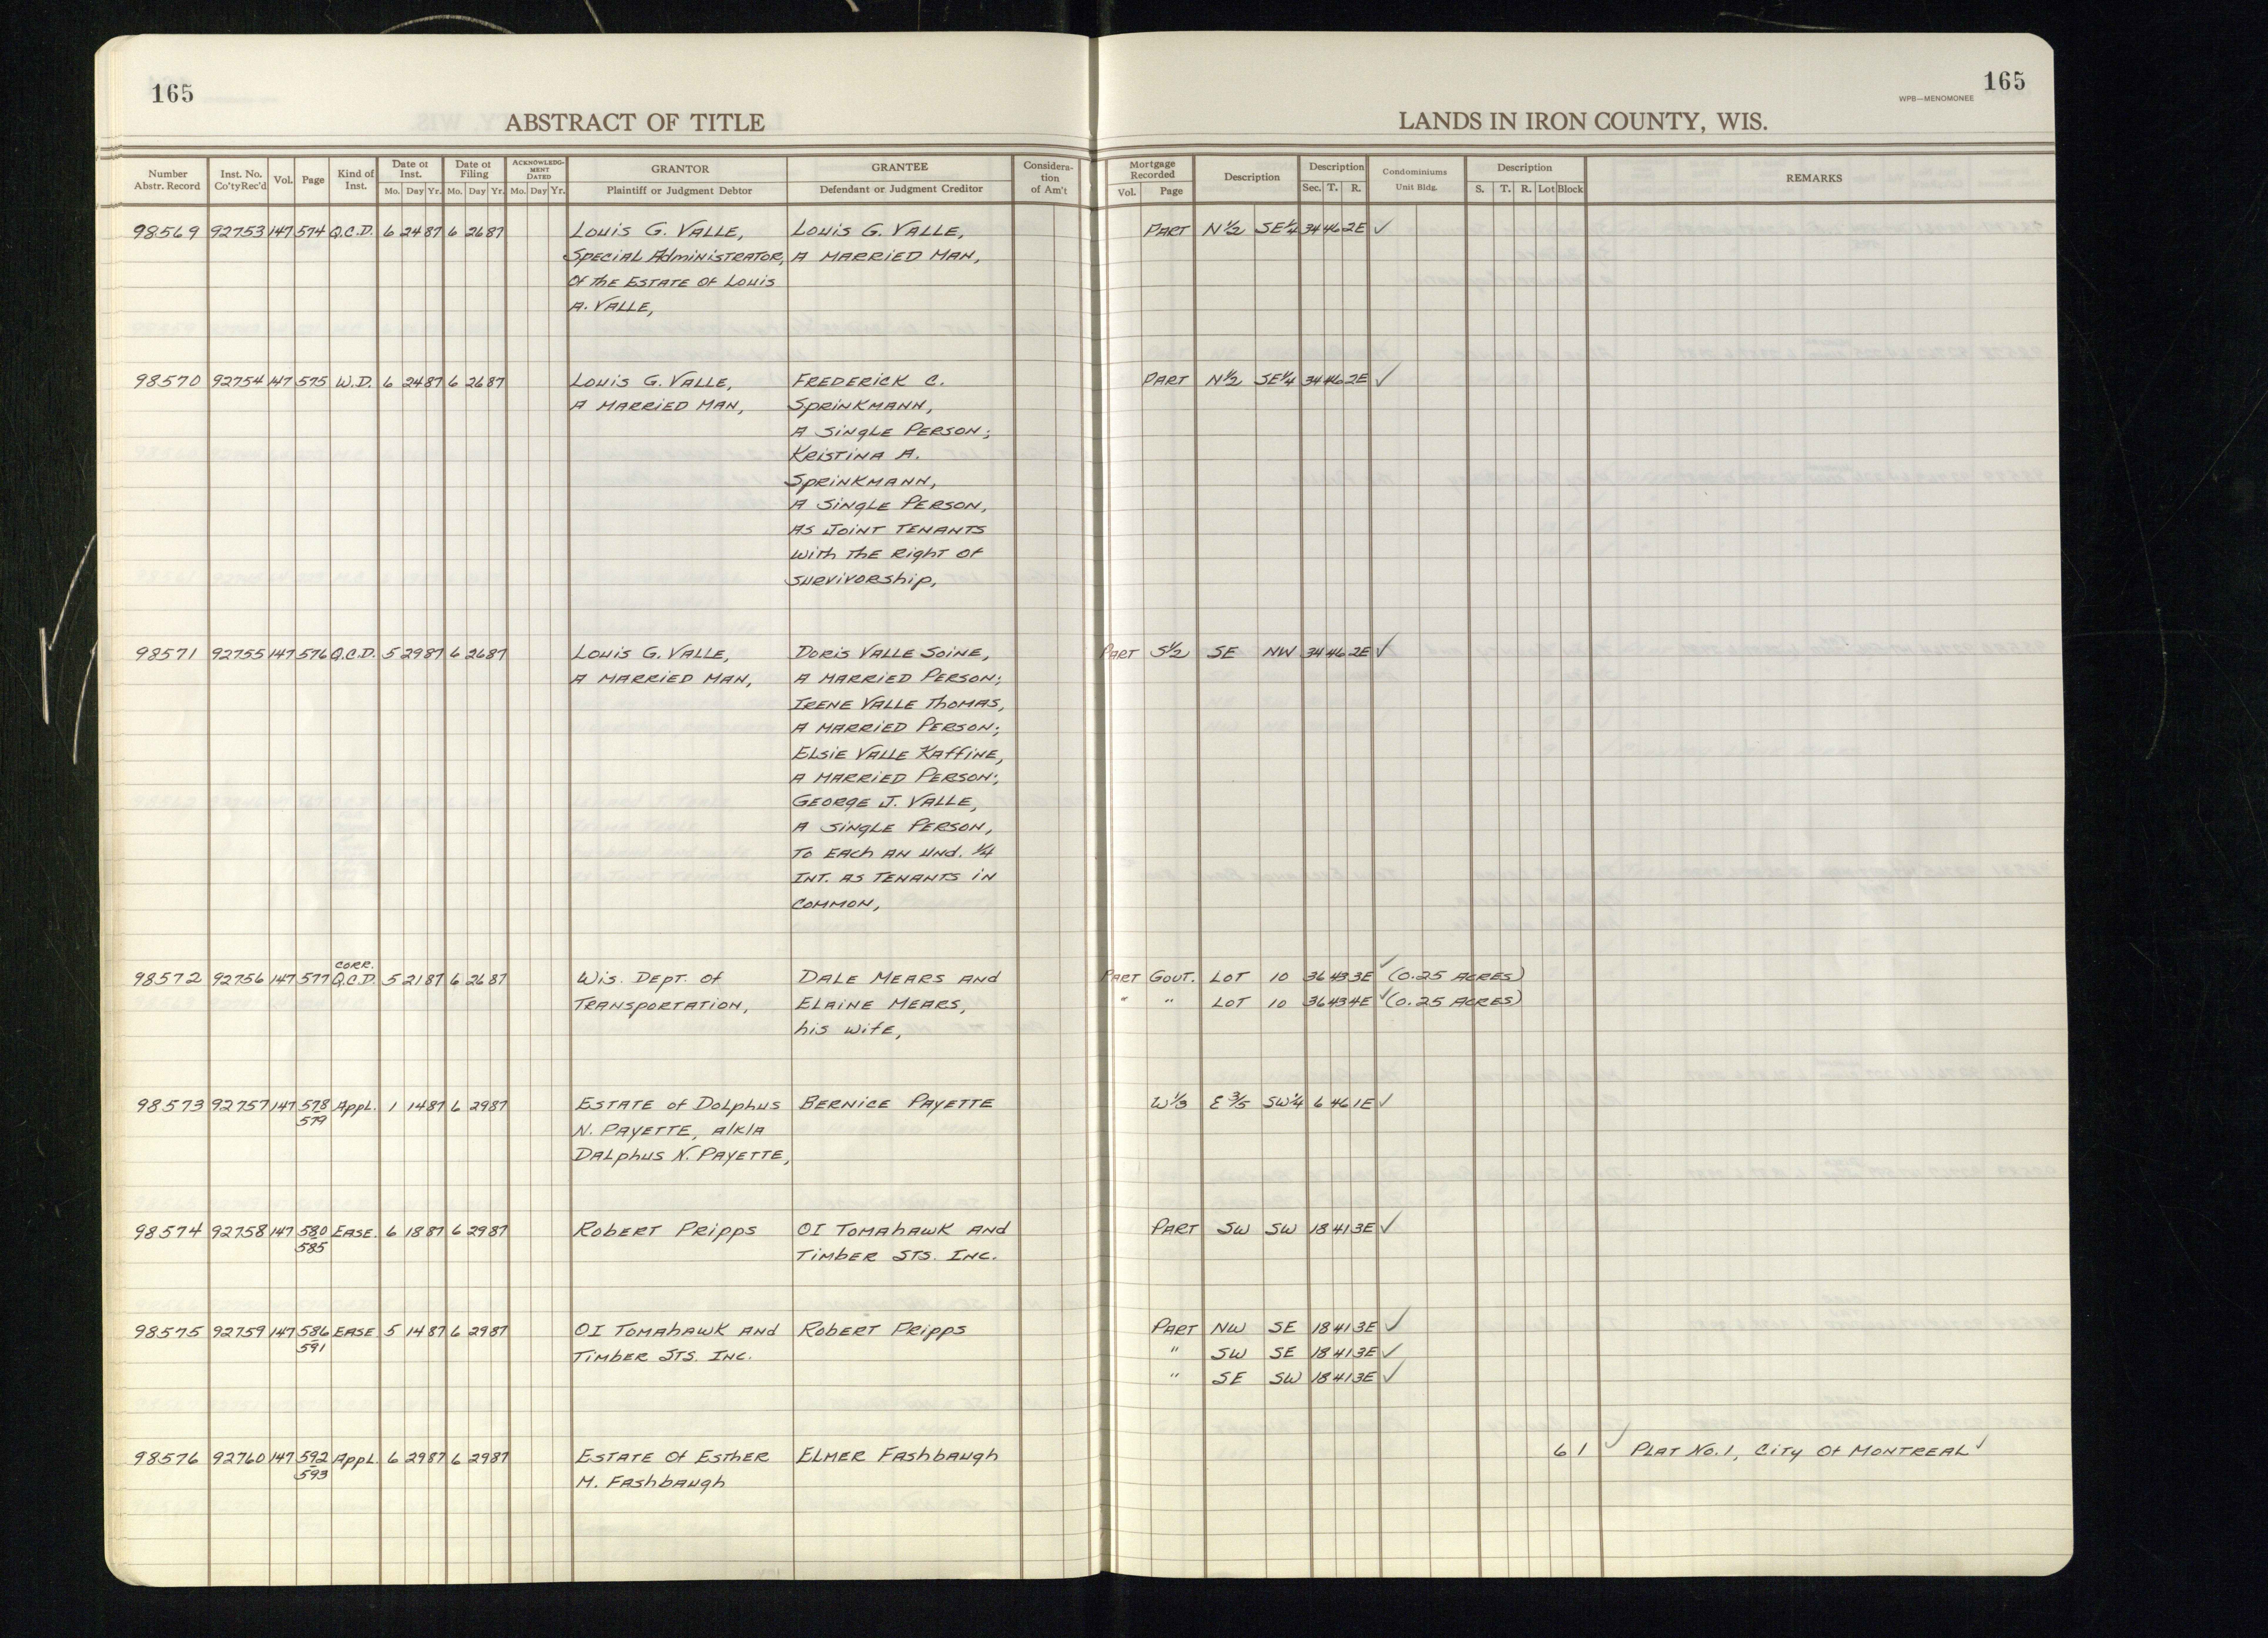 165
165
WPB—MENOMONEE
ABSTRACT OF TITLE
LANDS IN IRON COUNTY, WIS.
Number Abstr. Record
Inst. No. Co'ty Rec'd
Vol.
Page
Kind of Inst.
Date of Inst.
Mo. Day Yr.
Date of Filing
Mo. Day Yr.
ACKNOWLEDG-MENT DATED
Mo. Day Yr.
GRANTOR
Plaintiff or Judgment Debtor
GRANTEE
Defendant or Judgment Creditor
Considera-tion of Am't
Mortgage Recorded
Vol. Page
Description
Description
Sec. T. R.
Condominiums
Unit Bldg.
Description
S. T. R. Lot Block
REMARKS
98569 92753 147 574 Q.C.D. 6 24 87 6 26 87 Louis G. Valle, Louis G. Valle, Part N½ SE¼ 34 46 2E ✓
Special Administrator, A Married Man,
Of the Estate of Louis
A. Valle,
98570 92754 147 575 W.D. 6 24 87 6 26 87 Louis G. Valle, Frederick C. Part N½ SE¼ 34 46 2E ✓
A Married Man, Sprinkmann,
A Single Person;
Kristina A.
Sprinkmann,
A Single Person,
As Joint Tenants
With the Right of
Survivorship,
98571 92755 147 576 Q.C.D. 5 29 87 6 26 87 Louis G. Valle, Doris Valle Soine, Part S½ SE NW 34 46 2E ✓
A Married Man, A Married Person;
Irene Valle Thomas,
A Married Person;
Elsie Valle Kaffine,
A Married Person;
George J. Valle,
A Single Person,
To Each An Und. ¼
Int. As Tenants in
Common,
Corr.
98572 92756 147 577 Q.C.D. 5 21 87 6 26 87 Wis. Dept. of Dale Mears and Part Govt. Lot 10 36 43 3E ✓ (0.25 Acres)
Transportation, Elaine Mears, " " Lot 10 36 43 4E ✓ (0.25 Acres)
his Wife,
98573 92757 147 578 Appl. 1 14 87 6 29 87 Estate of Dolphus Bernice Payette W⅓ E⅗ SW¼ 6 46 1E ✓
579 N. Payette, a/k/a
Dalphus N. Payette,
98574 92758 147 580 Ease. 6 18 87 6 29 87 Robert Pripps OI Tomahawk and Part SW SW 18 41 3E ✓
585 Timber STS. Inc.
98575 92759 147 586 Ease. 5 14 87 6 29 87 OI Tomahawk and Robert Pripps Part NW SE 18 41 3E ✓
591 Timber STS. Inc. " SW SE 18 41 3E ✓
" SE SW 18 41 3E ✓
98576 92760 147 592 Appl. 6 29 87 6 29 87 Estate of Esther Elmer Fashbaugh 6 1 ✓ Plat No. 1, City of Montreal ✓
593 M. Fashbaugh